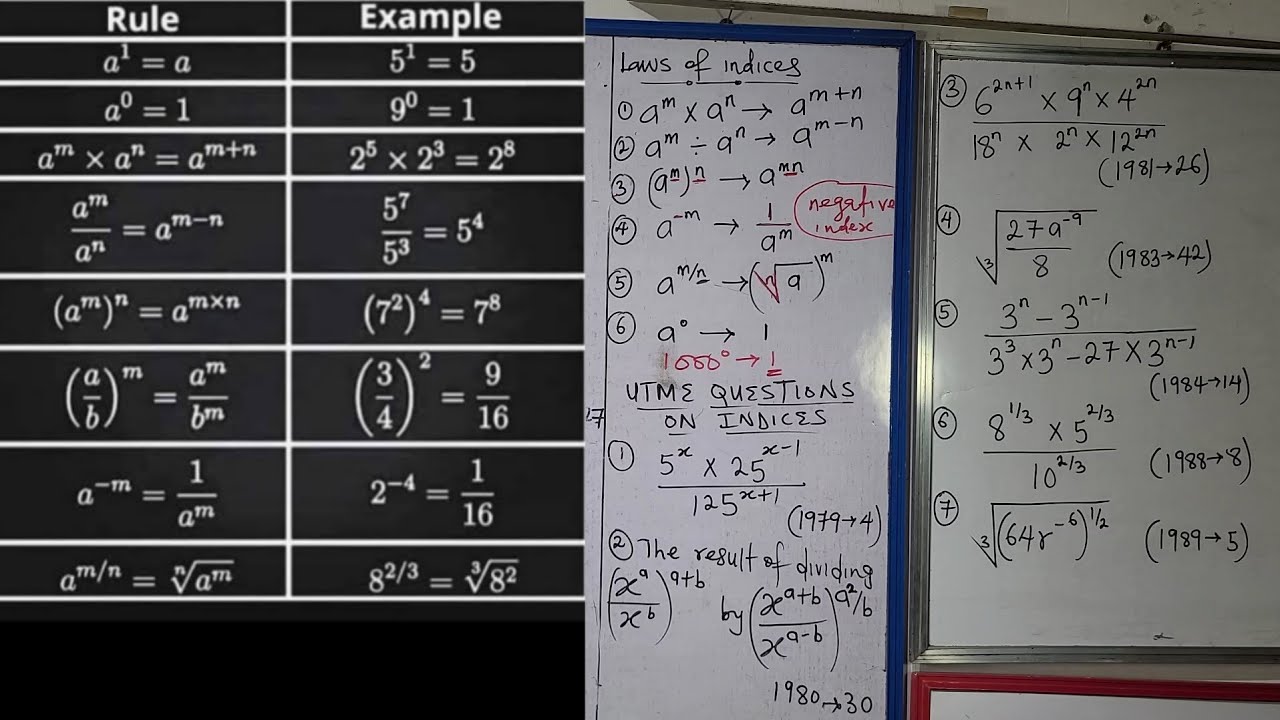 Rule Example
a¹ = a 5¹ = 5
a⁰ = 1 9⁰ = 1
aᵐ × aⁿ = aᵐ⁺ⁿ 2⁵ × 2³ = 2⁸
aᵐ/aⁿ = aᵐ⁻ⁿ 5⁷/5³ = 5⁴
(aᵐ)ⁿ = aᵐˣⁿ (7²)⁴ = 7⁸
(a/b)ᵐ = aᵐ/bᵐ (3/4)² = 9/16
a⁻ᵐ = 1/aᵐ 2⁻⁴ = 1/16
a^(m/n) = ⁿ√(aᵐ) 8^(2/3) = ³√(8²)
Laws of indices
① aᵐ × aⁿ → aᵐ⁺ⁿ
② aᵐ ÷ aⁿ → aᵐ⁻ⁿ
③ (aᵐ)ⁿ → aᵐⁿ
④ a⁻ᵐ → 1/aᵐ negative index
⑤ a^(m/n) → (ⁿ√a)ᵐ
⑥ a⁰ → 1
1000⁰ → 1
UTME QUESTIONS
ON INDICES
① (5ˣ × 25ˣ⁻¹)/125ˣ⁺¹
(1979→4)
② The result of dividing
(xᵃ/xᵇ)ᵃ⁺ᵇ by (xᵃ⁺ᵇ/xᵃ⁻ᵇ)^(a²/b)
1980→30
③ (6²ⁿ⁺¹ × 9ⁿ × 4²ⁿ)/(18ⁿ × 2ⁿ × 12²ⁿ)
(1981→26)
④ ³√(27a⁻⁹/8) (1983→42)
⑤ (3ⁿ − 3ⁿ⁻¹)/(3³ × 3ⁿ − 27 × 3ⁿ⁻¹)
(1984→14)
⑥ (8^(1/3) × 5^(2/3))/10^(2/3) (1988→8)
⑦ ³√((64r⁻⁶)^(1/2)) (1989→5)